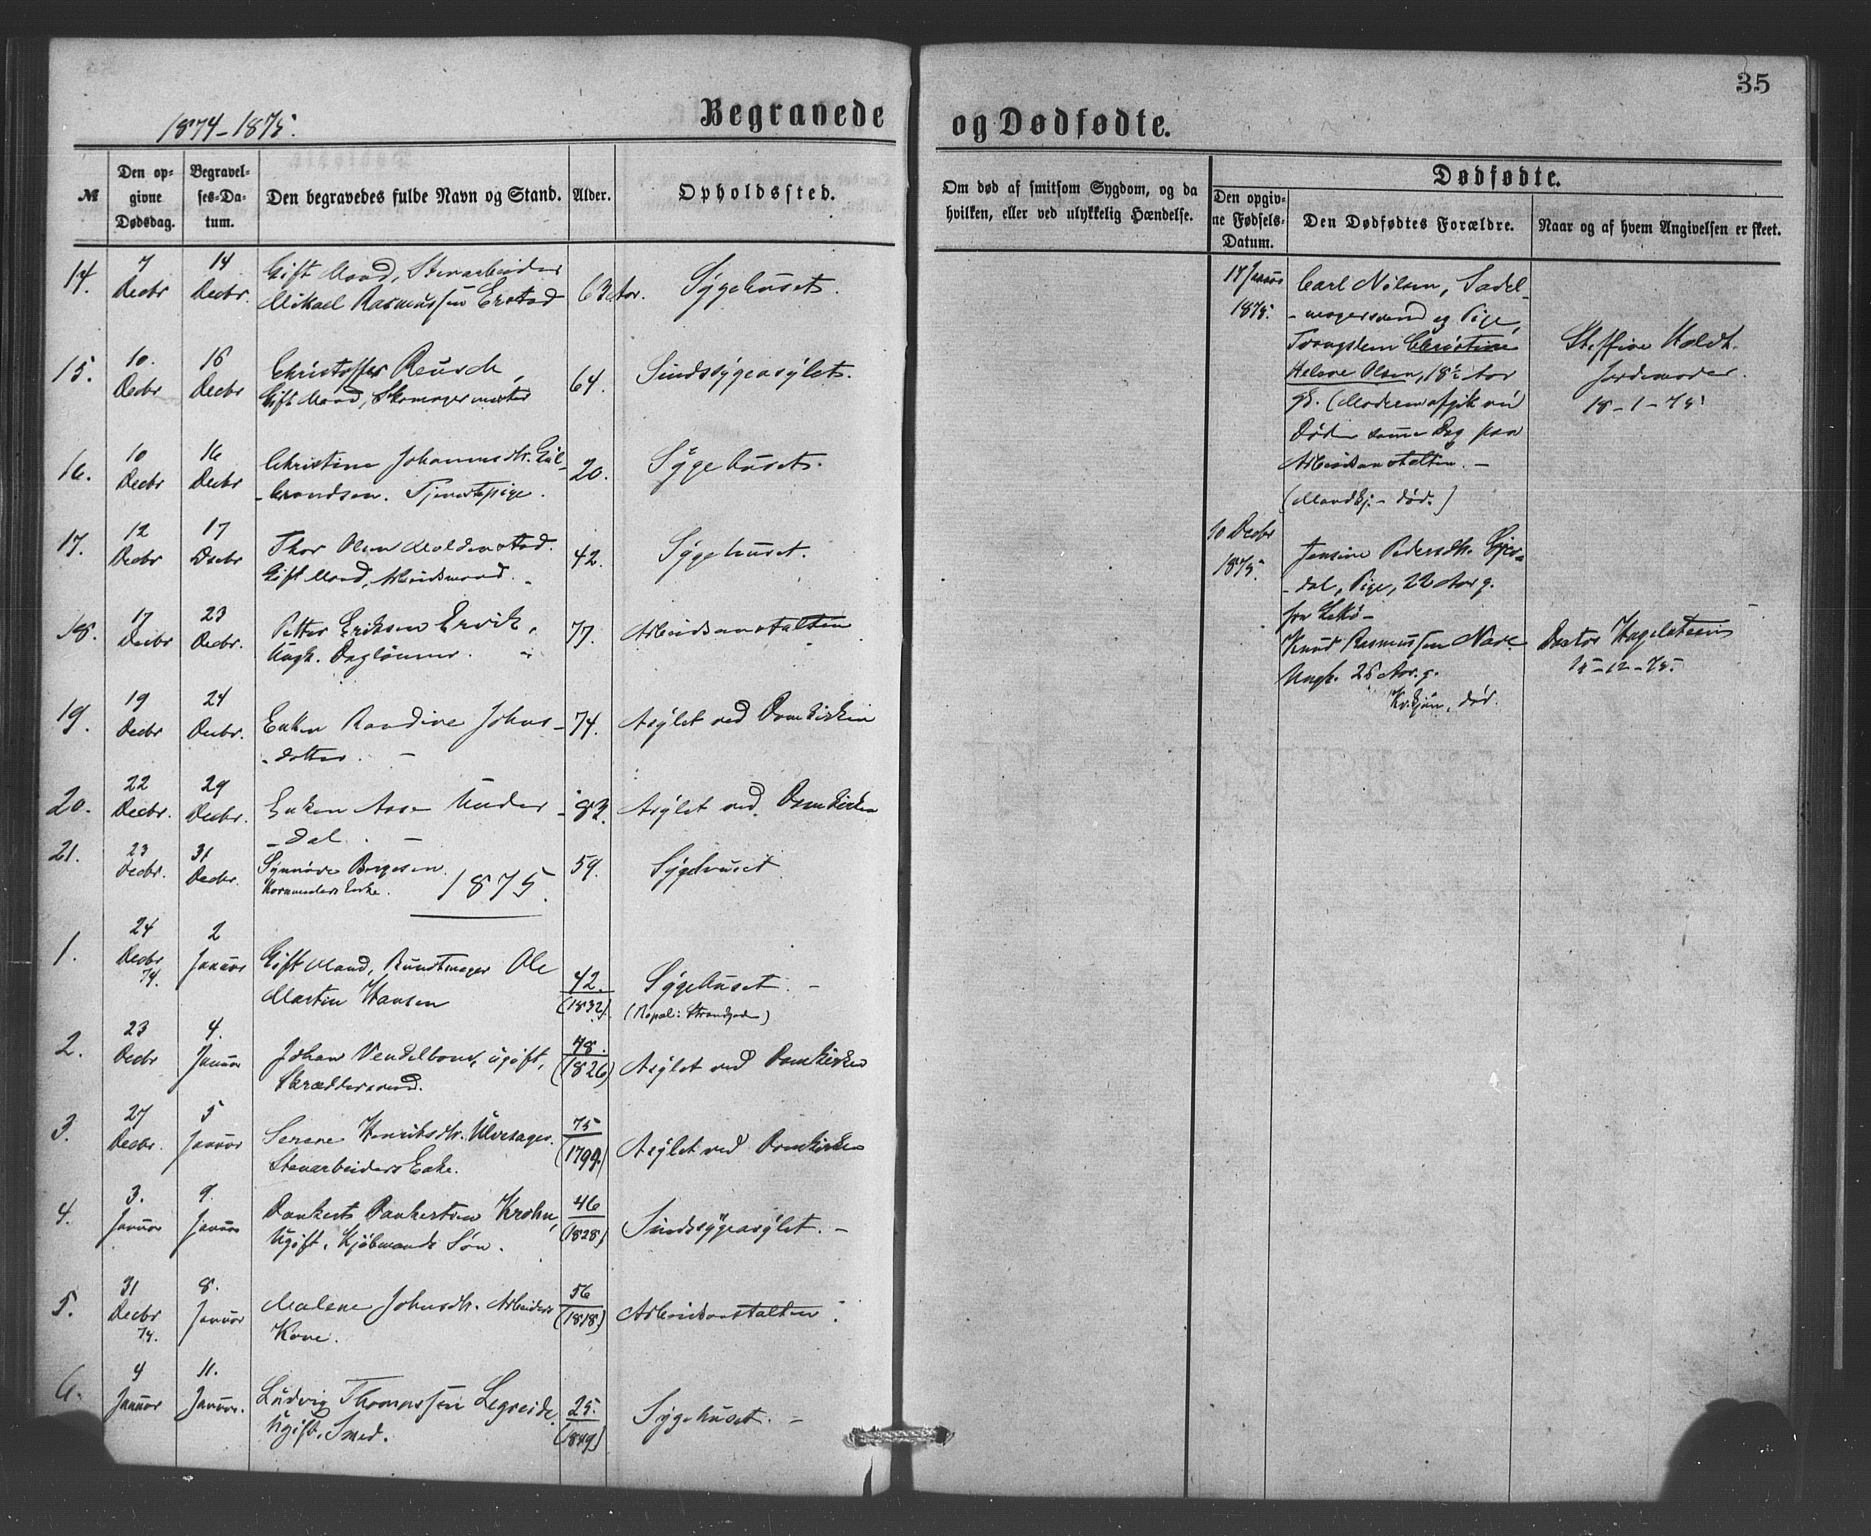 35
1874-1875.
Begravede og Dødfødte.
№
Den opgivne Dødsdag.
Begravelses-Datum.
Den begravedes fulde Navn og Stand.
Alder.
Opholdssted.
Om død af smitsom Sygdom, og da hvilken, eller ved ulykkelig Hændelse.
Dødfødte.
Den opgivne Fødsels-Datum.
Den Dødfødtes Forældre.
Naar og af hvem Angivelsen er skeet.
14. 7 Decbr 14 Decbr. Gift Mand, Stenarbeider 63 Aar. Sygehuset.
Mikael Rasmussen Erstad
15. 10. Decbr 16 Decbr Christoffer Reusch, 64. Sindssygeasylet.
Gift Mand, Skomagermester
16. 10 Decbr 16 Decbr Christine Johannesdtr. Gul- 20. Sygehuset.
-brandsen. Tjenestepige.
17. 12 Decbr 17 Decbr Thor Olsen Moldenstad. 42. Sygehuset.
Gift Mand, Arbeidsmand.
18. 17 Decbr 23 Decbr. Petter Eriksen Ervik, 77. Arbeidsanstalten
Ungk. Daglønner.
19. 19 Decbr 24 Decbr. Enken Randine Johns- 74. Asylet ved Domkirken
-datter. -
20. 22 Decbr. 29 Decbr. Enken Aase Under- 83. Asylet ved Domkirken
-dal. -
21. 23 Decbr. 31 Decbr. Synnøve Børgesen 59. Sygehuset
Enke.
1875.
1. 24 Decbr 74. 2 Januar Gift Mand, Buntmager Ole 42. (1832). Sygehuset. -
Martin Hansen (Nopal: Strandgaden)
2. 23 Decbr 4. Januar Johan Vendelboe, ugift, 48. (1826) Asylet ved Domkirken
Skræddersvend.
3. 27 Decbr. 5 Januar Serene Henriksdtr. Ulvesager. 75 (1799.) Asylet ved Domkirken
Stenarbeiders Enke.
4. 3. Januar 9. Januar Dankert Dankertsen Krohn, 46 (1828) Sindssygeasylet. -
Ugift, Kjøbmands Søn.
5. 31 Decbr 74. 8. Januar Malene Johnsdtr. Arbeiders 56 (1818) Arbeidsanstalten.
Kone.
6. 4 Januar 11. Januar. Ludvig Thomassen Legreide. 25. (1849) Sygehuset. -
Ugift. Smed.
17 Januar 1875.
Carl Nilsen, Sadel-
-magersvend og Pige,
Trangstem Christine
Helene Olsen, 18½ Aar
gl. (Moderen afgik ved
Døden samme Dag paa
Arbeidsanstalten. -
(Mandkj. - død.)
Steffine Holdt.
Jordemoder.
18-1-75
10 Decbr 1875.
Jensine Pedersdtr. Gjer-
-dal, Pige, 22 Aar g.
fra Askø -
Knud Rasmussen Nave
Ungk. 28 Aar. g.
Kv.kjøn, død.
Doctor Hagelsteen
15-12-75.